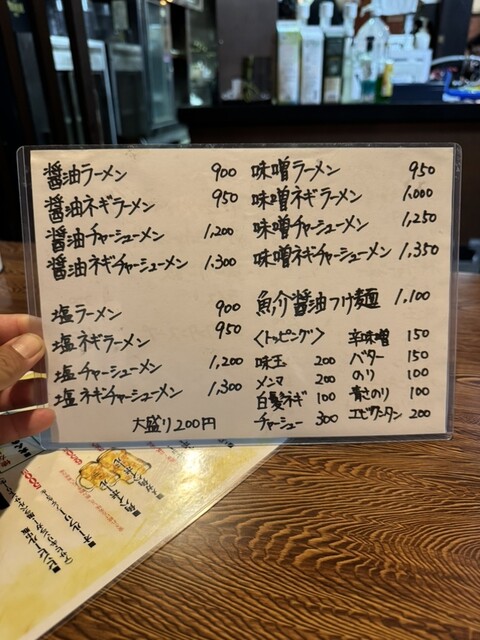 醤油ラーメン 900
醤油ネギラーメン 950
醤油チャーシューメン 1,200
醤油ネギチャーシューメン 1,300
塩ラーメン 900
塩ネギラーメン 950
塩チャーシューメン 1,200
塩ネギチャーシューメン 1,300
大盛り200円
味噌ラーメン 950
味噌ネギラーメン 1,000
味噌チャーシューメン 1,250
味噌ネギチャーシューメン 1,350
魚介醤油つけ麺 1,100
〈トッピング〉
味玉 200
メンマ 200
白髪ネギ 100
チャーシュー 300
辛味噌 150
バター 150
のり 100
青さのり 100
エビワンタン 200